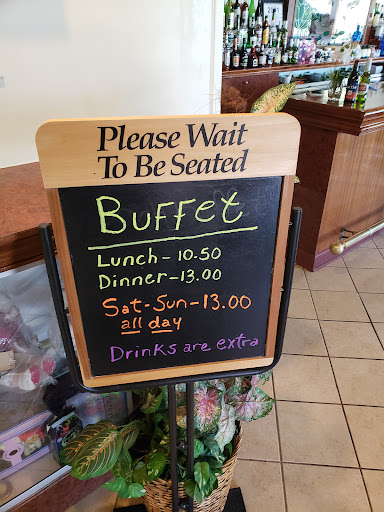 Please Wait
To Be Seated
Buffet
Lunch - 10-50
Dinner - 13.00
Sat - Sun - 13.00
all day
Drinks are extra